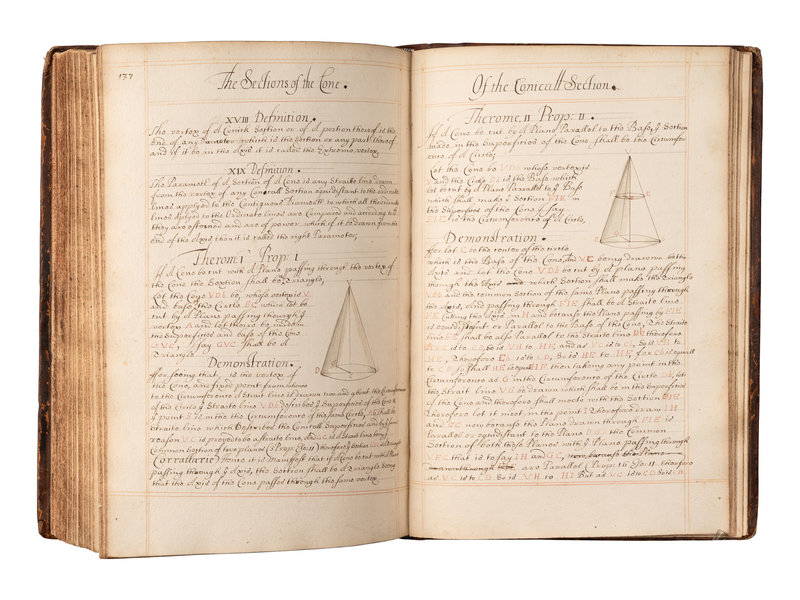 137
The Sections of the Cone.
XVIII Definition.
The vertex of a Conick Section or of a portion thereof is the
end of any Diameter which is the Section or any part thereof
and if it be in the Axis it is called the Extreme vertex
XIX Definition.
The Parameter of a Section of a Cone is any Straite line drawn
from the vertex of any Conicall Section equidistant to the ordinate
lines applyed to the Contiguous Diameter to which all the ordinate
lines Aplyed to the
they are and are of power which if it be drawn from the
end of the Axis then it is called the right Parameter,
Therom: I Prop: I
If a Cone be cut with a Plane passing through the vertex of
the Cone the Section shall be a triangle,
Let the Cone VDb be, whose vertex is V
and base the Circle BC which let be
cut by a Plane passing through the
vertex and let there be made in
the Superficies and base of the Cone
GVC, I say GVC shall be a
Triangle
Demonstration.
For seeing that, is the vertex of
the Cone, and fixed point from whence
to the Circumference a Strait line is drawn
of the Circle the Straite line VDb describes the Superficies of the Cone &
the point is in the Circumference of the same Circle, shall be
Straite line which Describes the Conicall Superficies and by the same
reason VC is proved to be a straite line, and GC is a Strait line being
Common Section of two planes (3 Prop: Eſo: 11) therefore
(Corrallarie) Hence it is Manifest that if a Cone be cut with a Plane
passing through the Axis, the Section shall be a Triangle Seeing
that the Axis of the Cone passes through the same vertex
D
Of the Conicall Section.
Therome, II Prop: II.
If a Cone be cut by a Plane Parallel to the Base, the Section
made in the Superficies of the Cone shall be the Circumfer-
ence of a Circle;
Let the Cone be VDb whose vertex is V
and the Circle Db is the Base which
let be cut by a Plane Parallel to the Base
which shall make the Section FIE in
the Superficies of the Cone, I say
FIE is the Circumference of a Circle,
D
Demonstration.
For Let C be the center of the Circle
which is the Base of the Cone, and VC being drawne be the
Axis and let the Cone VDb be cut by a plane passing
through the Axis which Section shall make the Triangle
VDb and the common Section of the same Plane passing through
the Axis, and passing through FIE shall be a Straite line
FE cutting the Axis in H and because the Plane passing by FIE
is equidistant or Parallel to the Base of the Cone, the Straite
line FE shall be also Parallel to the Straite line Db therefore
as VC is to CD, So is VH to HF, and as VC is to Cb, So is VH to
HE, Therefore Cb is to CD, So is HE to HF, for Cb is equall
to CD so shall HE be equall HF then taking any point in the
Circumference as G in the Circumference of the Circle Db, let
the Straite line VG be drawn which shall be in the Superficies
of the Cone and therefore shall meete with the Section FIE
therefore let it meet in the point I Therefore draw IH
and GC now because the Plane drawn through FIE is
Parallel or equidistant to the Plane Db the Common
Section of both these Planes with the Plane passing through
VGC that is to say IH and GC, now because the Plane
are Parallel (Prop: 16 Eſo: 11 therefore
as VC is to CG So is VH to HI But as VC is to CD So is VH